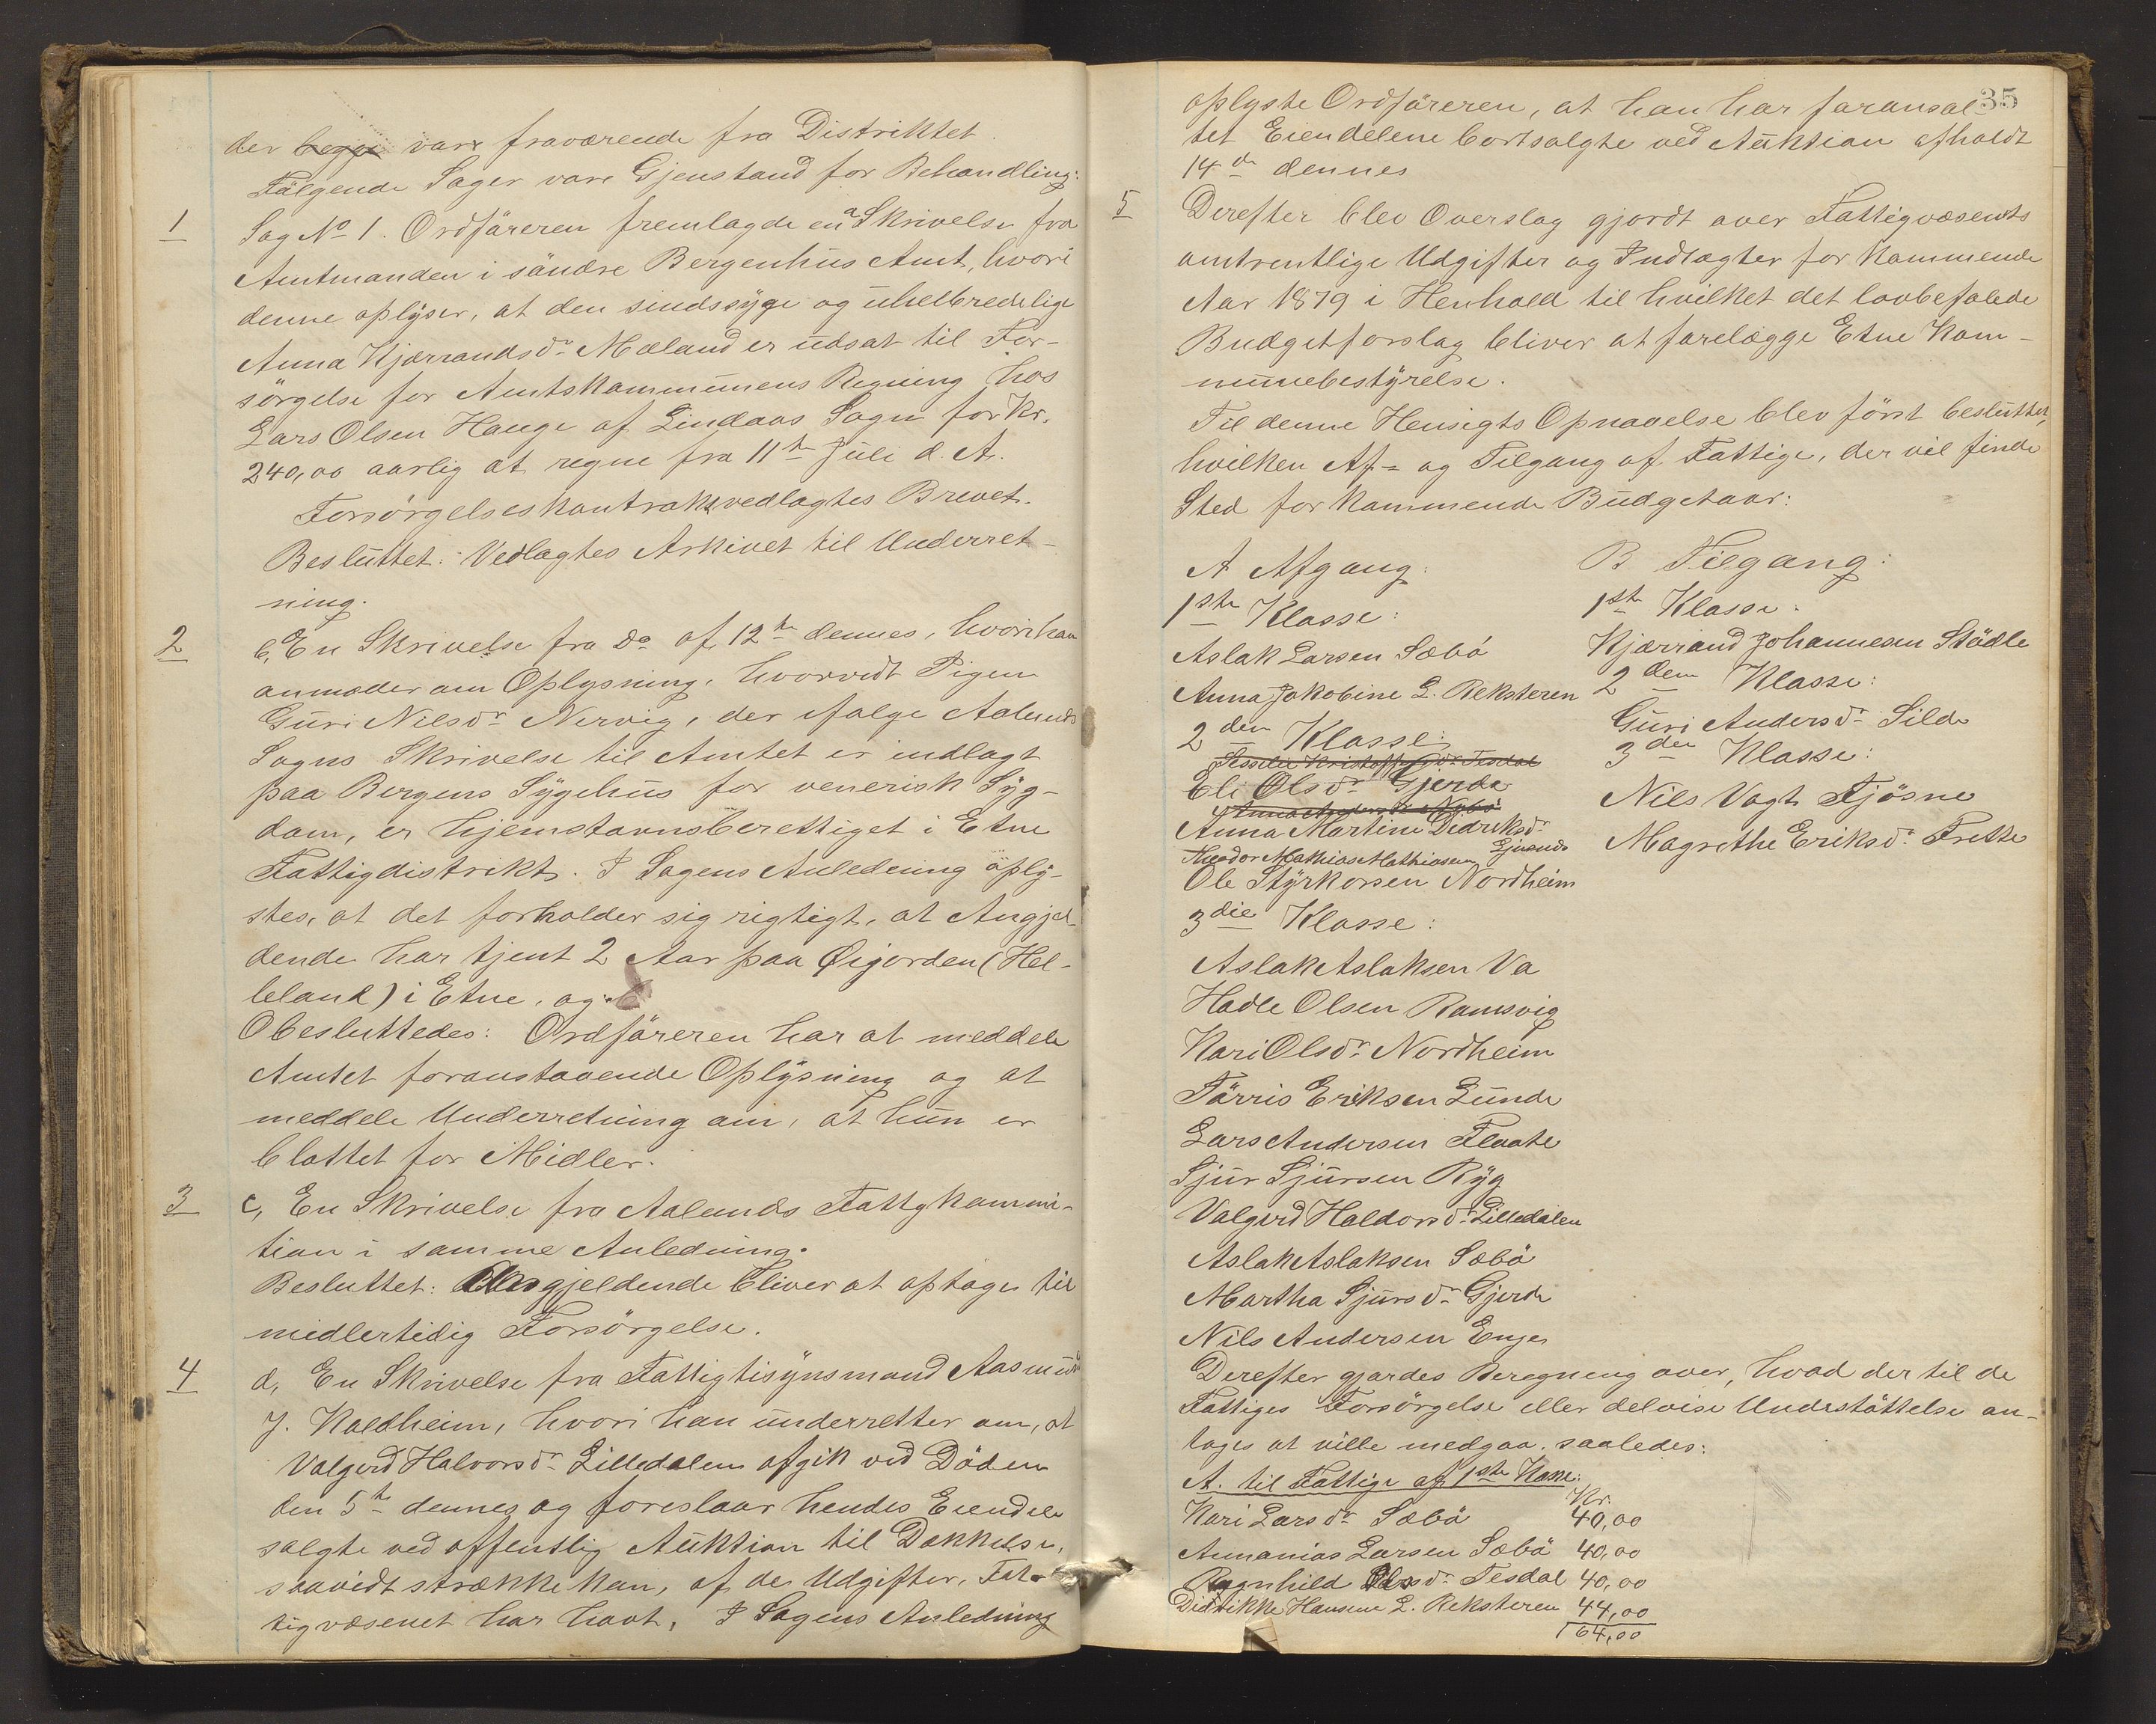 der begge vare fraværende fra Distriktet.
Følgende Sager vare Gjenstand for Behandling:
1
Sag No 1. Ordføreren fremlagde en a Skrivelse fra
Amtmanden i søndre Bergenhus Amt, hvori
denne oplyser, at den sindssyge og uhelbredelige
Anna Kjærrandsdr. Mæland er udsat til For-
sørgelse for Amtskommunens Regning hos
Lars Olsen Hauge af Lindaas Sogn for Kr.
240,00 aarlig at regne fra 11te Juli d. A.
Forsørgelseskontrakt vedlagtes Brevet.
Besluttet: Vedlagtes Arkivet til Underret-
ning.
2
b, En Skrivelse fra Do af 12te dennes, hvori han
anmoder om Oplysning, hvorvidt Pigen
Guri Nilsdr. Nervig, der ifølge Aalunds
Sogns Skrivelse til Amtet er indlagt
paa Bergens Sygehus for venerisk Syg-
dom, er hjemstavnsberettiget i Etne
Fattigdistrikt. I Sagens Anledning oply-
stes, at det forholder sig rigtigt, at Angjel-
dende har tjent 2 Aar paa Øigarden (Hel-
leland) i Etne, og
besluttedes: Ordføreren har at meddele
Amtet foranstaaende Oplysning og at
meddele Underretning om, at hun er
blottet for Midler.
3
c, En Skrivelse fra Aalunds Fattigkommi-
tion i samme Anledning.
Besluttet: Angjeldende bliver at optage til
midlertidig Forsørgelse.
4
d, En Skrivelse fra Fattigtisynsmand Aasmund
J. Kaldheim, hvori han underretter om, at
Valgerd Halvorsdr. Lilledalen afgik ved Døden
den 5te dennes og foreslaar hendes Eiendele
solgte ved offentlig Auktion til Dækkelse,
saavidt strække kan, af de Udgifter, Fat-
tigvæsenet har havt, I Sagens Anledning
35
oplyste Ordføreren, at han har foranstal-
tet Eiendelene bortsolgte ved Auktion afholdt
14de dennes
5
Derefter blev Overslag gjordt over Fattigvæsents
omtrentlige Udgifter og Indtægter for kommende
Aar 1879 i Henhold til hvilket det lovbefalede
Budgetforslag bliver at forelægge Etne Kom-
munebestyrelse.
Til denne Hensigts Opnaaelse blev først besluttet,
hvilken Af- og Tilgang af Fattige, der vil finde
Sted for kommende Budgetaar:
A Afgang:
1ste Klasse:
Aslak Larsen Sæbø
Anna Jakobine L. Reksteren
2den Klasse:
Eli Olsdr. Gjerde
Anna Martine Didriksdr.
Theodor Mathias Mathiasen
Ole Styrkorsen Nordheim
3die Klasse:
Aslak Aslaksen Va
Hadle Olsen Ramsvig
Kari Olsdr. Nordheim
Tørris Eriksen Lunde
Lars Andersen Flaate
Sjur Sjursen Ryg
Valgerd Haldorsdr. Lilledalen
Aslak Aslaksen Sæbø
Martha Sjursdr. Gjerde
Nils Andersen Enge
B Tilgang:
1ste Klasse:
Kjærrand Johannesen Stødle
2den Klasse:
Guri Andersdr. Silde
3die Klasse:
Nils Vagt Tjøsne
Magrethe Eriksdr. Frette
Derefter gjordes Beregning over, hvad der til de
Fattiges Forsørgelse eller delvise Understøttelse an-
tages at ville medgaa, saaledes:
A. til Fattige af 1ste Klasse:
Kr.
Kari Larsdr. Sæbø 40,00
Annanias Larsen Sæbø 40,00
Ragnhild Olsdr. Tesdal 40,00
Didrikke Hansine L. Reksteren 44,00
164,00